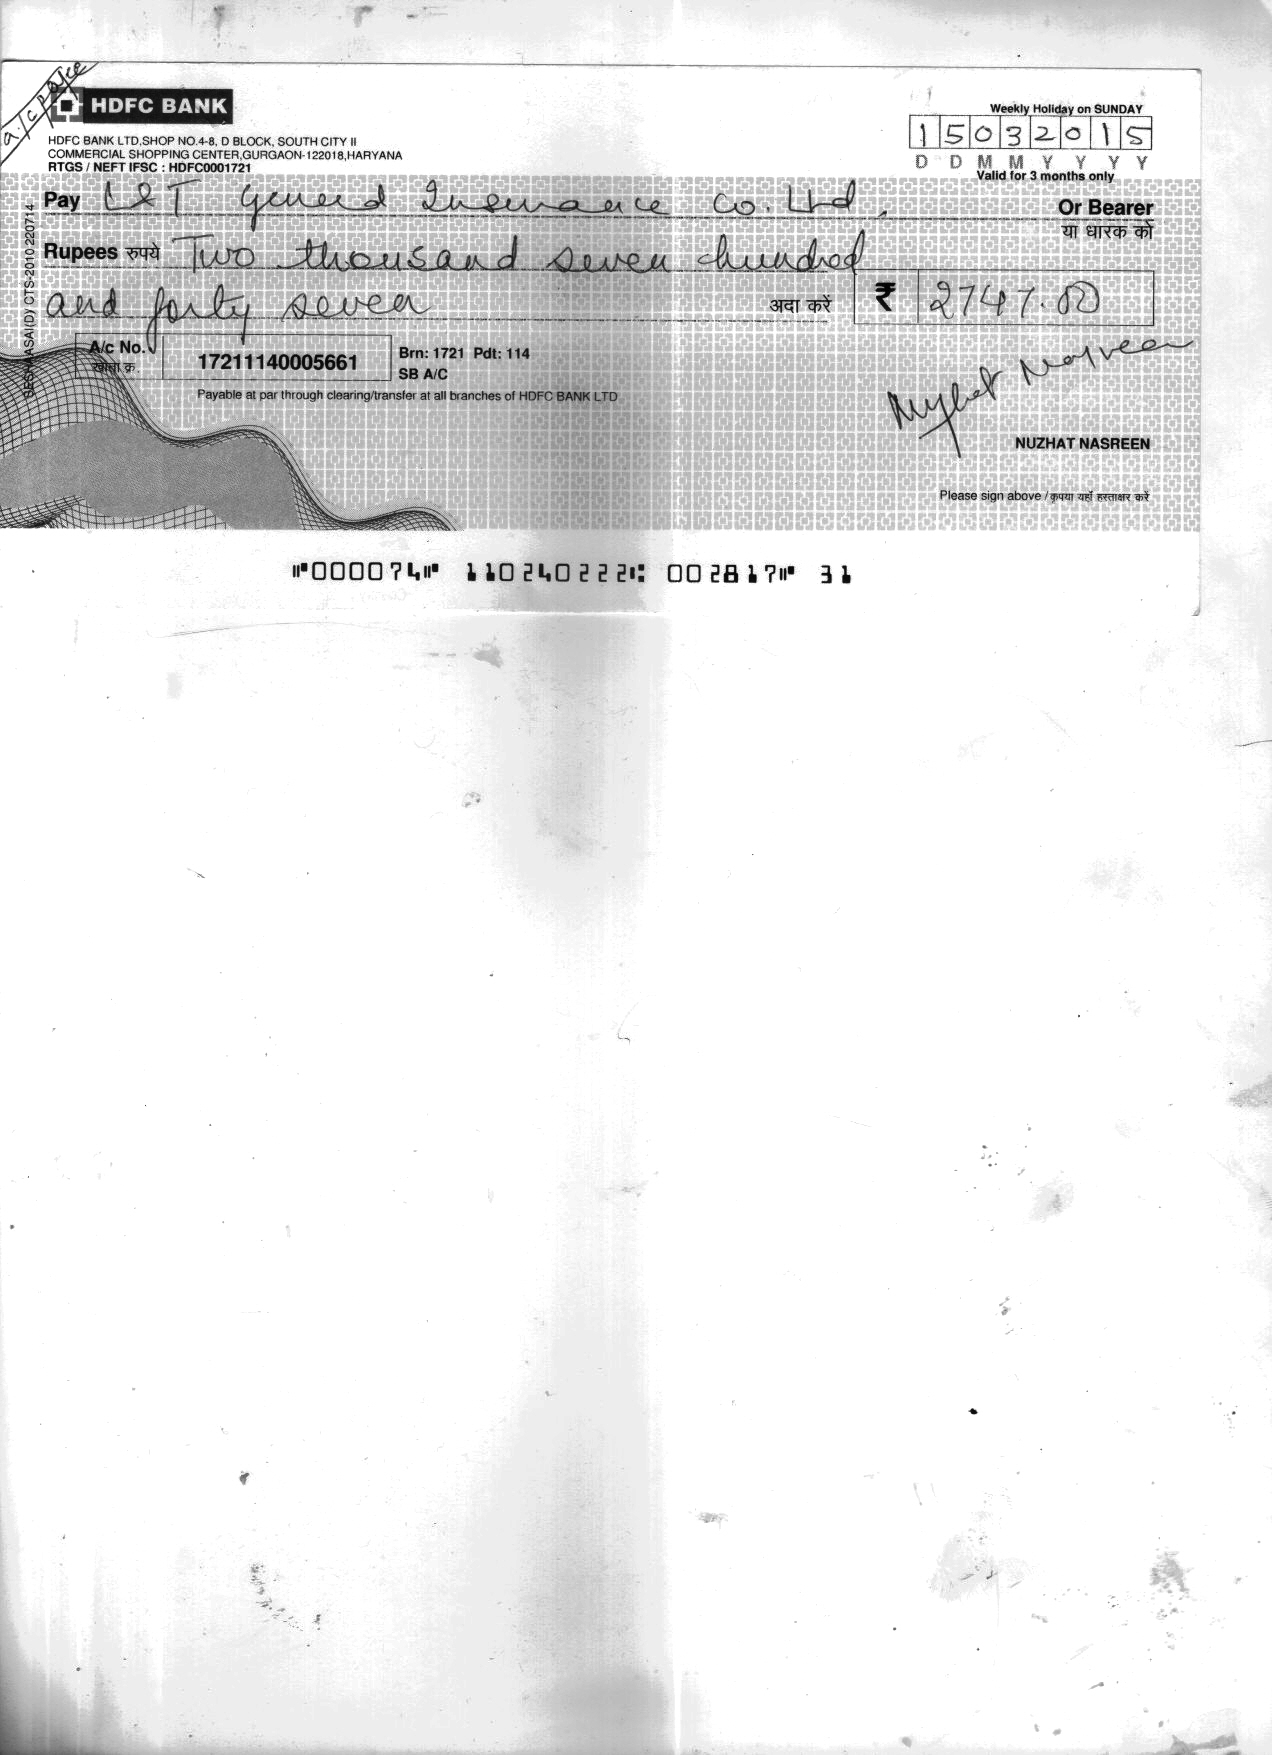 a/c payee
HDFC BANK
HDFC BANK LTD,SHOP NO.4-8, D BLOCK, SOUTH CITY II
COMMERCIAL SHOPPING CENTER,GURGAON-122018,HARYANA
RTGS / NEFT IFSC : HDFC0001721
Weekly Holiday on SUNDAY
1 5 0 3 2 0 1 5
D D M M Y Y Y Y
Valid for 3 months only
Pay L&T General Insurance Co. Ltd, Or Bearer
या धारक को
Rupees रुपये Two thousand seven hundred
and forty seven अदा करें ₹ 2747.00
A/c No. 17211140005661 Brn: 1721 Pdt: 114
खाता क्र. SB A/C
Payable at par through clearing/transfer at all branches of HDFC BANK LTD
Nuzhat Nasreen
NUZHAT NASREEN
Please sign above / कृपया यहाँ हस्ताक्षर करें
SESHAASAI(D) / CTS-2010 220714
⑈000074⑈ 110240222⑆ 002817⑈ 31